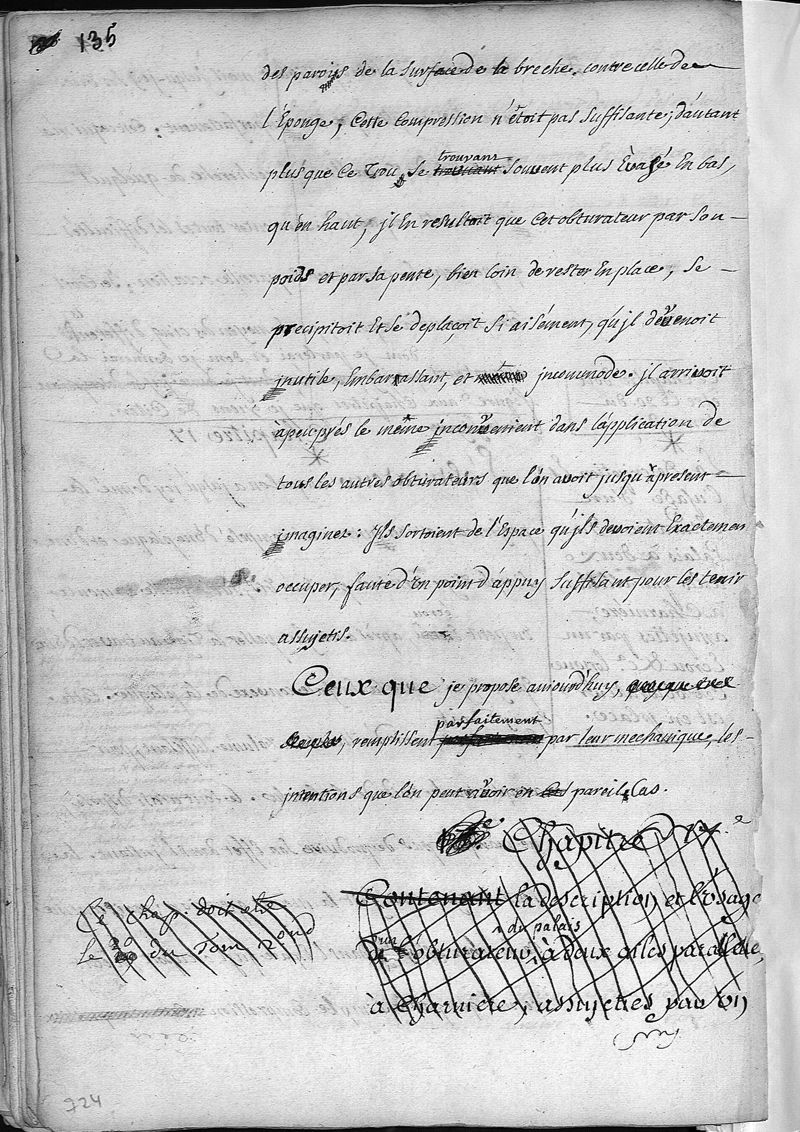 135
des parois de la surface de la breche, contre celle de
l'Éponge, Cette compression n'étoit pas suffisante, d'autant
trouvant
plus que Ce Trou, se trouvant souvent plus Évasé En bas,
qu'en haut, jl En resultoit que Cet obturateur par son
poids et par sa pente, bien loin de rester En place, se
precipitoit Et se deplaçoit si aisément, qu'jl devenoit
jnutile, Embarassant, et jncommode. jl arrivoit
àpeuprés le même jnconvenient dans l'application de
tous les autres obturateurs que l'on avoit jusqu'àpresent
jmaginez : Jls sortoient de l'Espace qu'jls devoient Exactement
occuper, faute d'Un point d'appuy suffisant pour les tenir
assujetis.
Ceux que je propose aujourd'huy,
parfaitement
remplissent par leur mechanique, les
jntentions que l'on peut avoir en pareil Cas.
Chapitre
Contenant la description et l'Usage
du palais
Obturateur, à deux ailes paralelle,
à Charniere, assujeties par Un
Ce Chap. doit etre
le du Tom 2ond
724